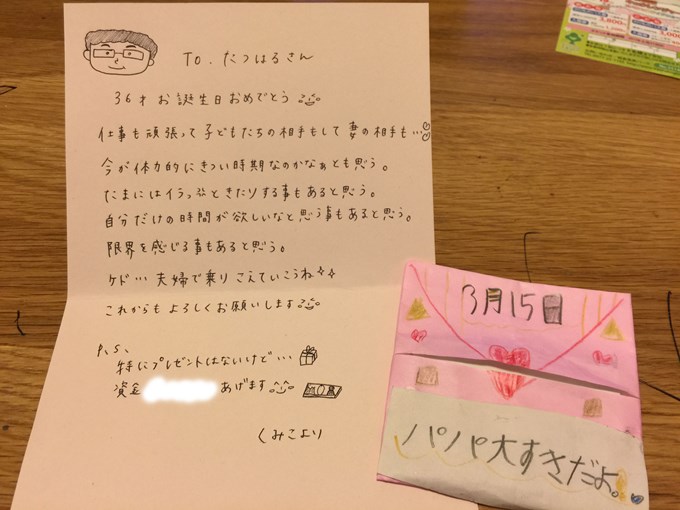 To. たつはるさん
36才 お誕生日おめでとう
仕事も頑張って子どもたちの相手もして妻の相手も…
今が体力的にきつい時期なのかなぁとも思う。
たまにはイラっとときたりする事もあると思う。
自分だけの時間が欲しいなと思う事もあると思う。
限界を感じる事もあると思う。
ケド… 夫婦で乗りこえていこうね
これからもよろしくお願いします
P.S.
特にプレゼントはないけど…
資金 あげます
くみこより
3月15日
パパ大すきだよ。